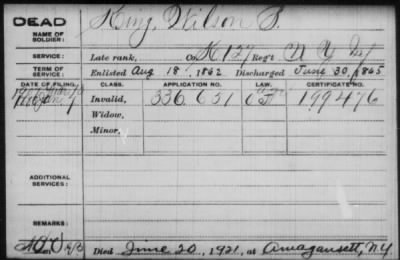 DEAD King, Wilson S.
NAME OF SOLDIER:
SERVICE: Late rank, Co. K 127 Reg't N Y Inf
TERM OF SERVICE: Enlisted Aug 18, 1862 Discharged June 30, 1865
DATE OF FILING. CLASS. APPLICATION NO. LAW. CERTIFICATE NO.
Invalid, 336.631 199476
Widow,
Minor,
ADDITIONAL SERVICES:
REMARKS:
Died June 20, 1921, at Amagansett, N.Y.